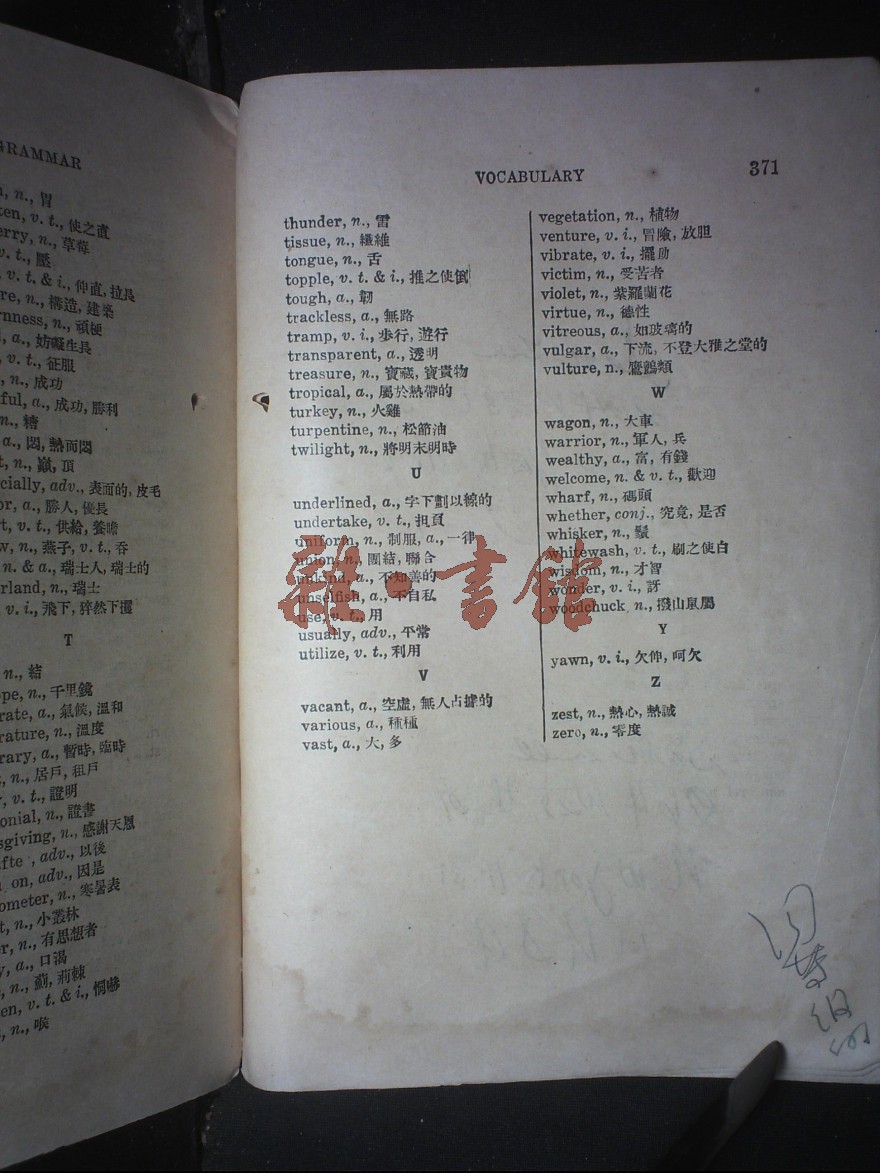 GRAMMAR
n., 胃
ten, v. t., 使之直
erry, n., 草莓
v. t., 壓
v. t. & i., 伸直, 拉長
re, n., 構造, 建築
rnness, n., 頑梗
a., 妨礙生長
v. t., 征服
n., 成功
ful, a., 成功, 勝利
n., 糖
a., 悶, 熱而悶
t, n., 巓, 頂
cially, adv., 表面的, 皮毛
or, a., 勝人, 優長
rt, v. t., 供給, 養贍
w, n., 燕子, v. t., 吞
n. & a., 瑞士人, 瑞士的
erland, n., 瑞士
v. i., 飛下, 猝然下攫
T
n., 結
ope, n., 千里鏡
rate, a., 氣候, 溫和
rature, n., 溫度
rary, a., 暫時, 臨時
n., 居戶, 租戶
v. t., 證明
onial, n., 證書
sgiving, n., 感謝天恩
fte, adv., 以後
on, adv., 因是
ometer, n., 寒暑表
t, n., 小叢林
er, n., 有思想者
y, a., 口渴
n., 薊, 荊棘
en, v. t. & i., 恫嚇
n., 喉
VOCABULARY 371
thunder, n., 雷
tissue, n., 纖維
tongue, n., 舌
topple, v. t. & i., 推之使倒
tough, a., 韌
trackless, a., 無路
tramp, v. i., 步行, 遊行
transparent, a., 透明
treasure, n., 寶藏, 寶貴物
tropical, a., 屬於熱帶的
turkey, n., 火雞
turpentine, n., 松節油
twilight, n., 將明未明時
U
underlined, a., 字下劃以線的
undertake, v. t., 担負
uniform, n., 制服, a., 一律
union, n., 團結, 聯合
unkind, a., 不知善的
unselfish, a., 不自私
use, v. t., 用
usually, adv., 平常
utilize, v. t., 利用
V
vacant, a., 空虛, 無人占據的
various, a., 種種
vast, a., 大, 多
vegetation, n., 植物
venture, v. i., 冒險, 放胆
vibrate, v. i., 擺動
victim, n., 受苦者
violet, n., 紫羅蘭花
virtue, n., 德性
vitreous, a., 如玻璃的
vulgar, a., 下流, 不登大雅之堂的
vulture, n., 鷹鷂類
W
wagon, n., 大車
warrior, n., 軍人, 兵
wealthy, a., 富, 有錢
welcome, n. & v. t., 歡迎
wharf, n., 碼頭
whether, conj., 究竟, 是否
whisker, n., 鬚
whitewash, v. t., 刷之使白
wisdom, n., 才智
wonder, v. i., 訝
woodchuck, n., 撥山鼠屬
Y
yawn, v. i., 欠伸, 呵欠
Z
zest, n., 熱心, 熱誠
zero, n., 零度
雜·書館